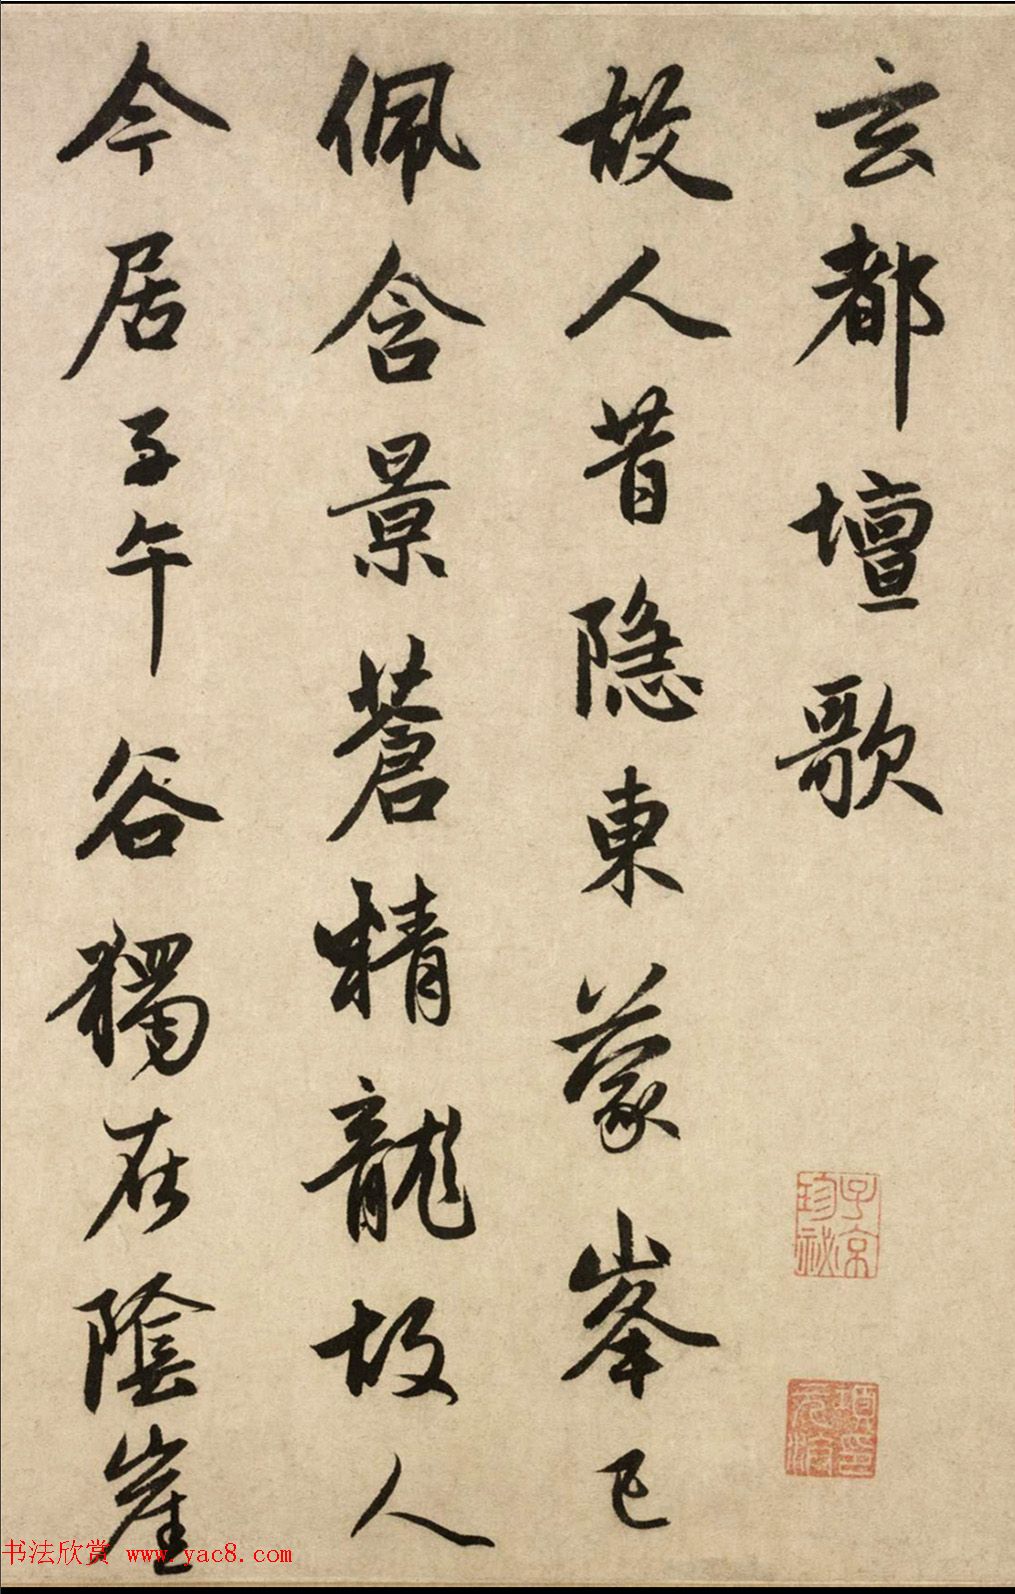 玄都壇歌
故人昔隐東蒙峯已
佩含景蒼精龍故人
今居子午谷獨在陰崖
子京珍祕
項元汴印
书法欣赏 www.yac8.com